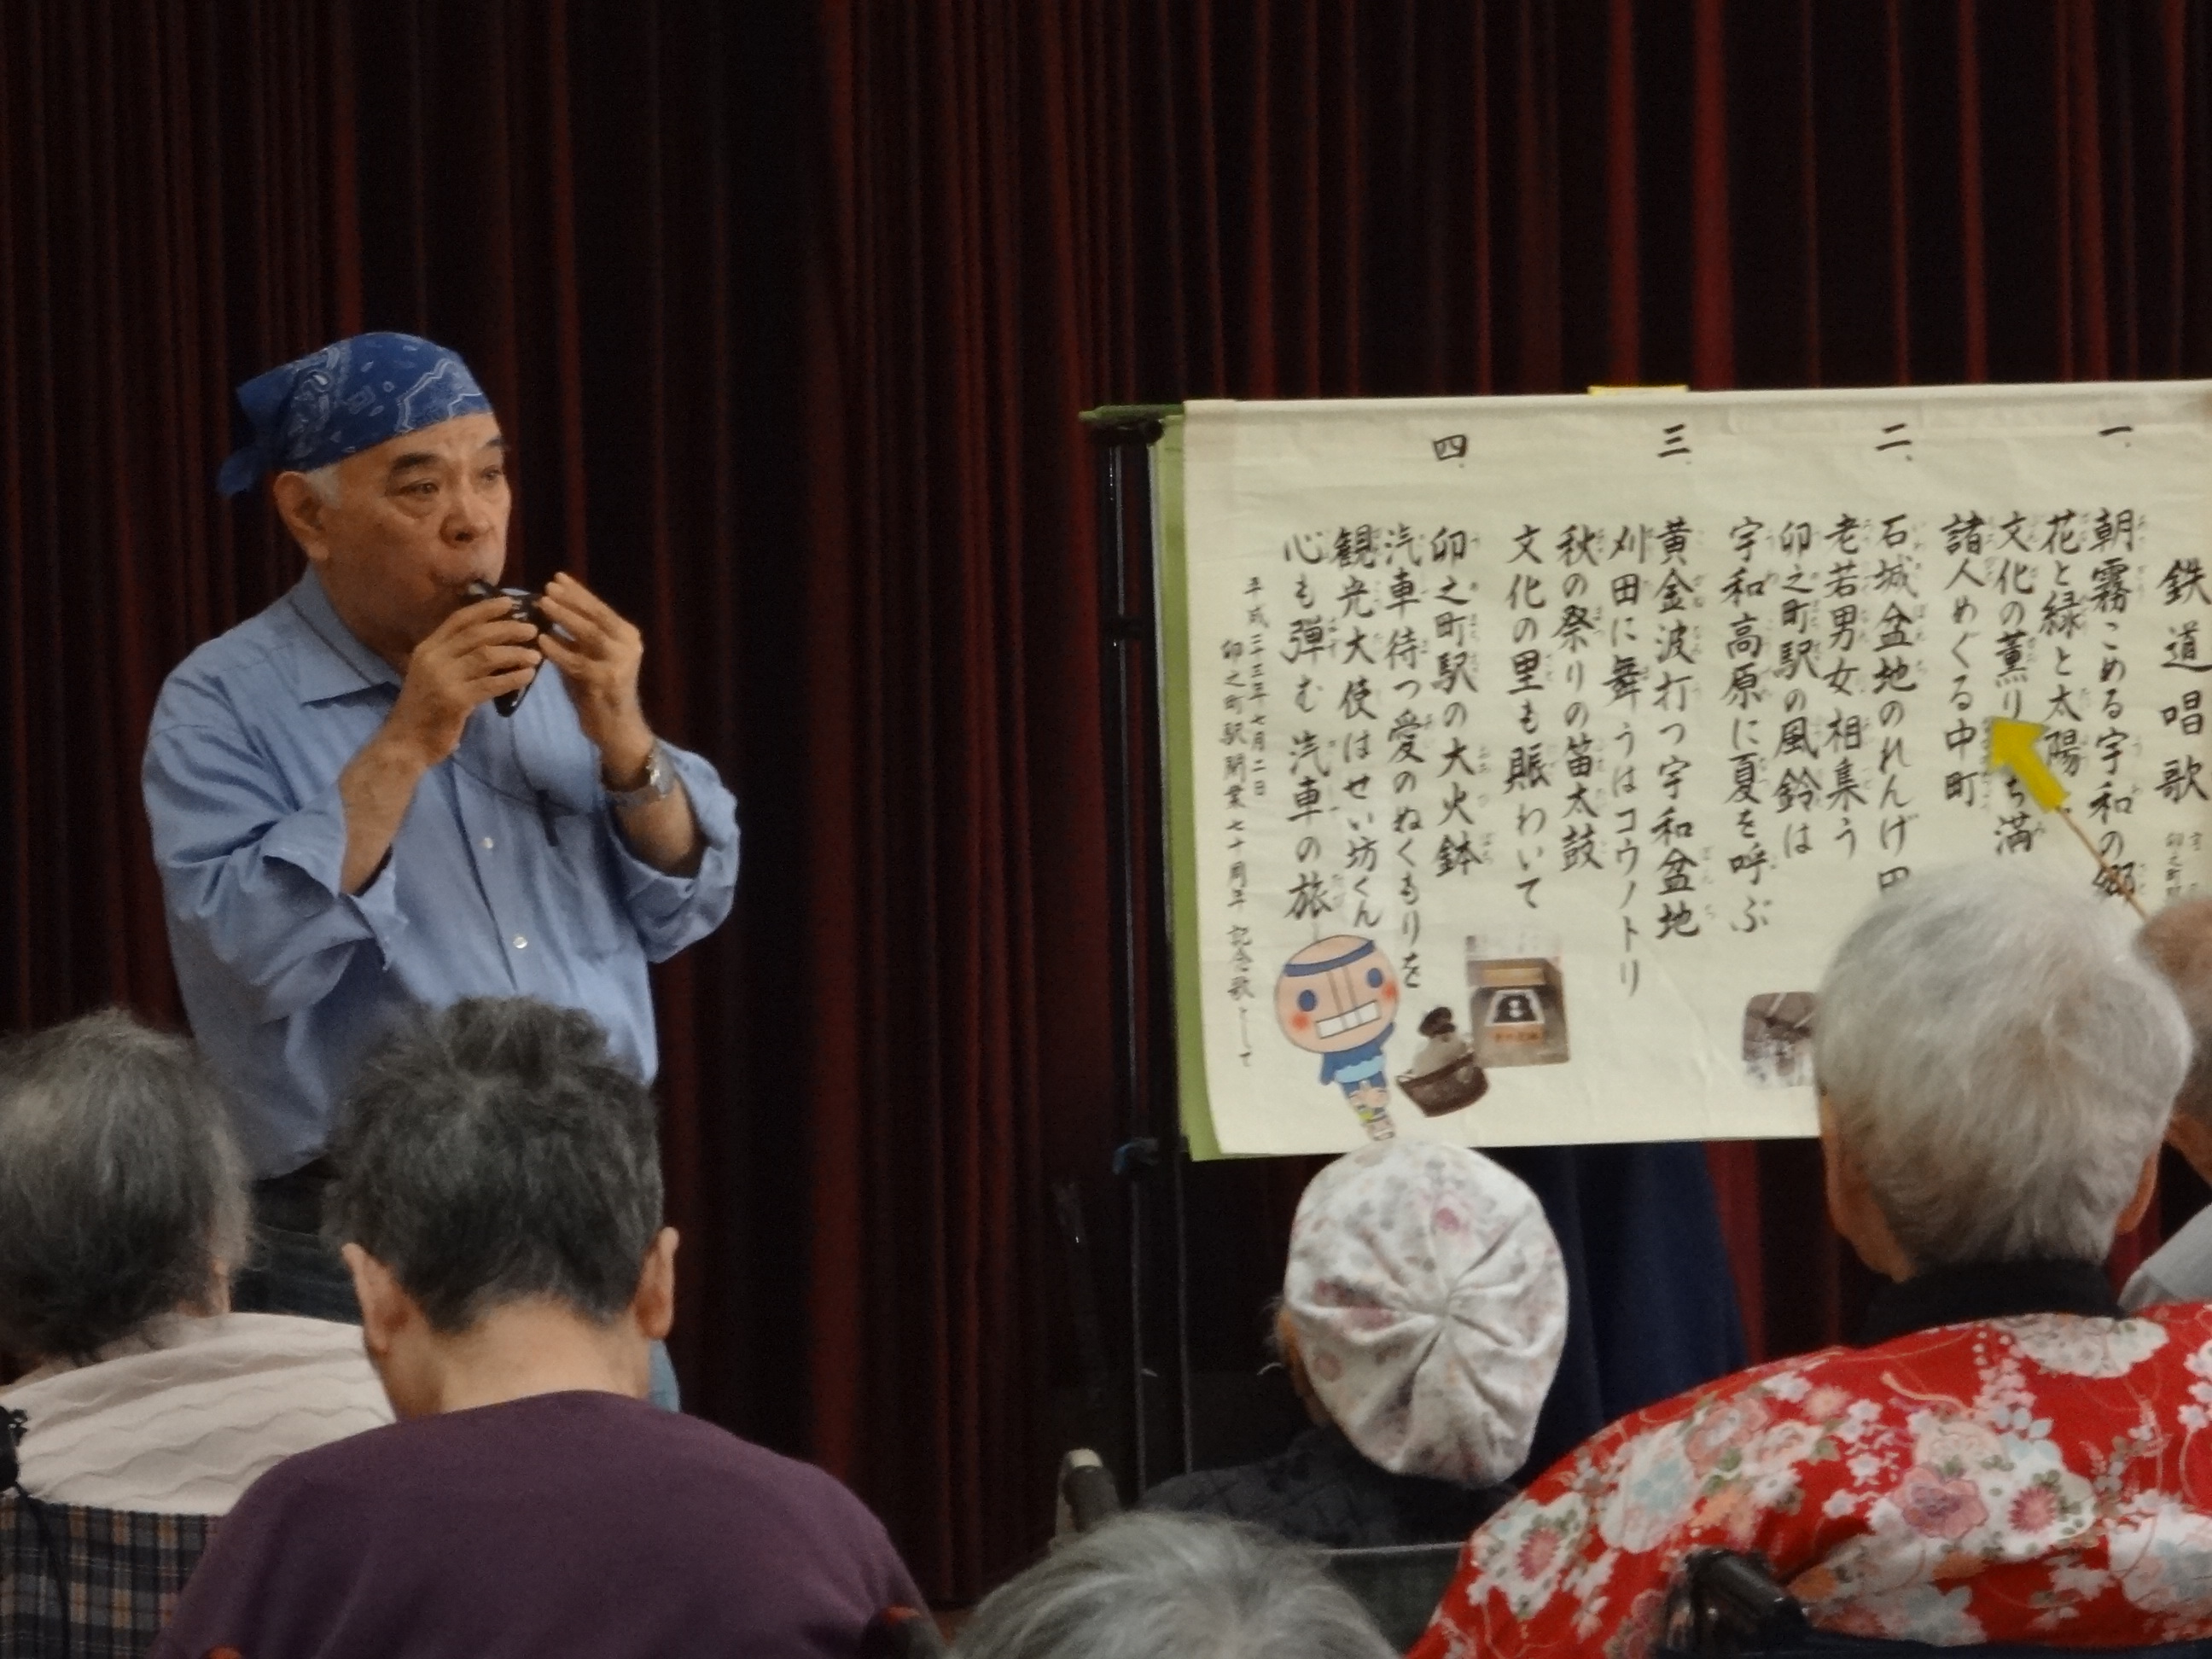 鉄道唱歌
一、
朝霧こめる宇和の郷
花と緑と太陽
文化の薫り
ち満
諸人めぐる中町
二、
石城盆地のれんげ田
老若男女相集う
卯之町駅の風鈴は
宇和高原に夏を呼ぶ
三、
黄金波打つ宇和盆地
刈田に舞うはコウノトリ
秋の祭りの笛太鼓
文化の里も賑わいて
四、
卯之町駅の大火鉢
汽車待つ愛のぬくもりを
観光大使はせい坊くん
心も弾む汽車の旅
平成二十三年七月二日
卯之町駅開業七十周年 記念歌として